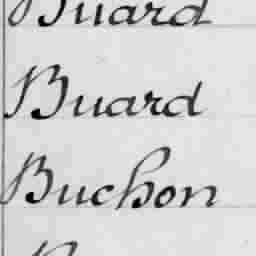 Buard
Buard
Buchon